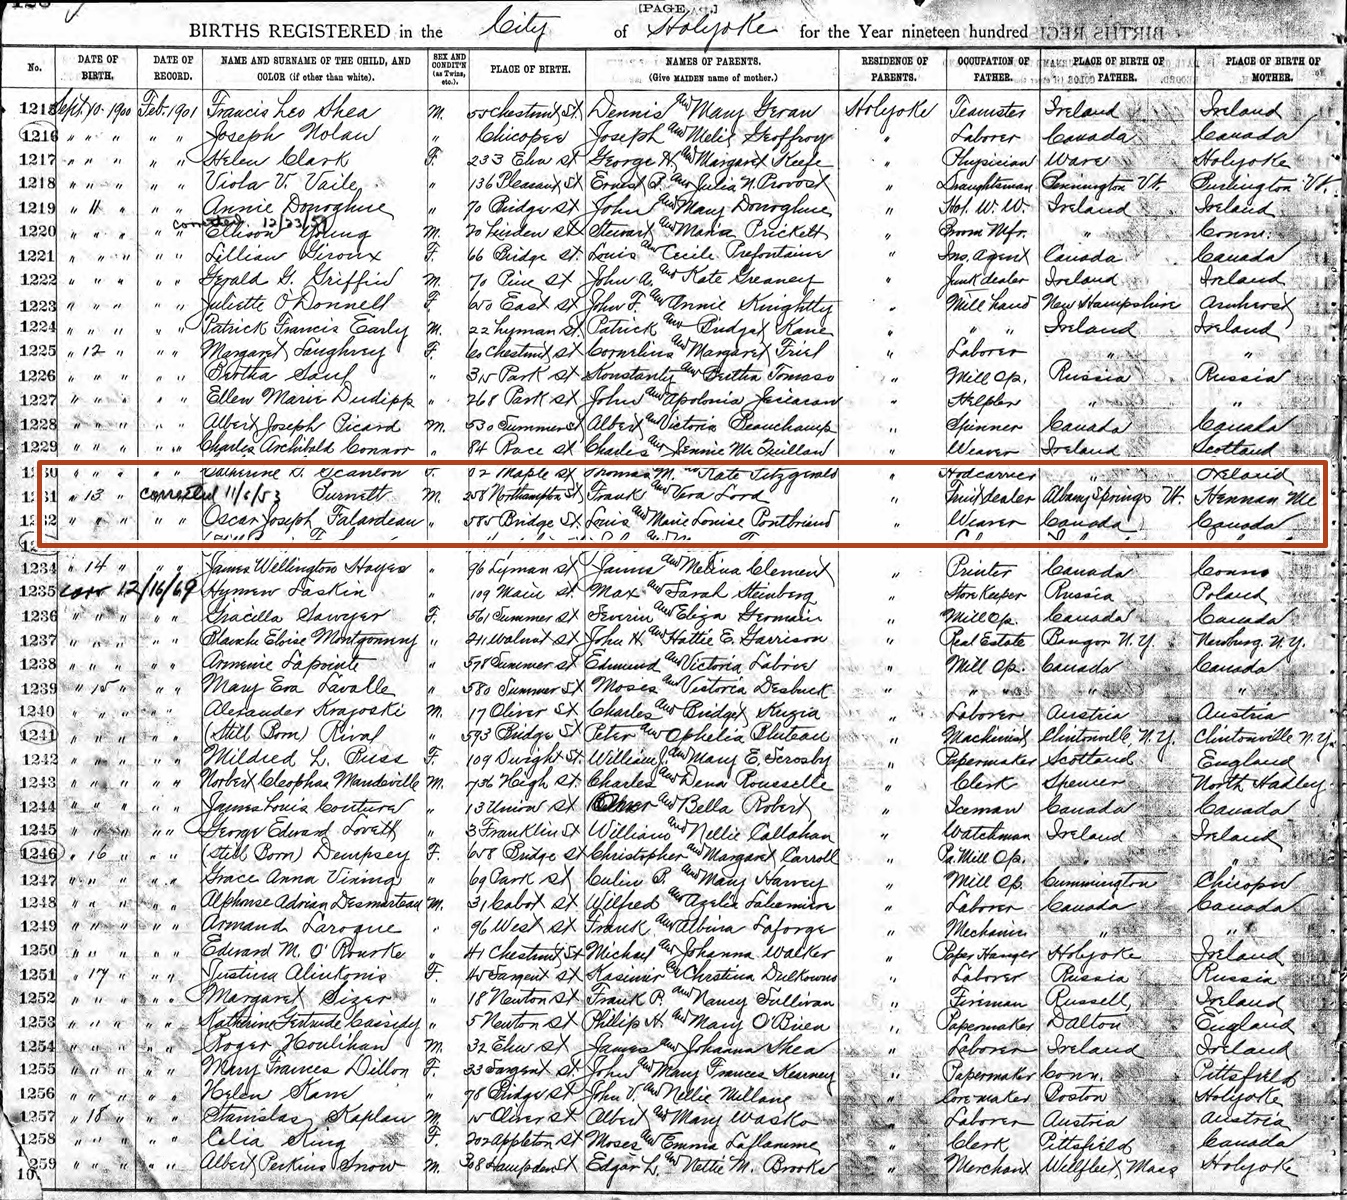 [PAGE]
BIRTHS REGISTERED in the City of Holyoke for the Year nineteen hundred
No. DATE OF BIRTH. DATE OF RECORD. NAME AND SURNAME OF THE CHILD, AND COLOR (if other than white). SEX AND CONDIT'N (as Twins, etc.). PLACE OF BIRTH. NAMES OF PARENTS. (Give MAIDEN name of mother.) RESIDENCE OF PARENTS. OCCUPATION OF FATHER. PLACE OF BIRTH OF FATHER. PLACE OF BIRTH OF MOTHER.
1215 Sept. 10 1900 Feb. 1901 Francis Leo Shea M. Chestnut St. Dennis and Mary Geran Holyoke Teamster Ireland Ireland
1216 " " " " " Joseph Nolan " Chicopee Joseph and Melie Geoffroy " Laborer Canada Canada
1217 " " " " " Helen Clark F. 233 Elm St George H. and Margaret Keefe " Physician Ware Holyoke
1218 " " " " " Viola V. Vaile " 136 Pleasant St Ernest P. and Julia N. Provost " Draughtsman Bennington Vt. Burlington Vt.
1219 " 11 " " " Annie Donoghue " 70 Bridge St John and Mary Donoghue " Hol. W. W. Ireland Ireland
corrected 12/23/
1220 " " " " " Ellison Young M. 20 Linden St Stewart and Maria Prickett " " Conn.
1221 " " " " " Lillian Giroux F. 66 Bridge St Louis and Cecile Prefontaine " Ins. Agent Canada Canada
1222 " " " " " Gerald G. Griffin M. 70 Pine St John A. and Kate Greaney " Junk dealer Ireland Ireland
1223 " " " " " Juliette O'Donnell F. East St John F. and Annie Knightly " Mill hand New Hampshire Amherst
1224 " " " " " Patrick Francis Early M. 22 Lyman St. Patrick and Bridget Kane " " " Ireland Ireland
1225 " 12 " " " Margaret Loughrey F. 60 Chestnut St Cornelius and Margaret Friel " Laborer " "
1226 " " " " " Bertha Saul " Park St Konstanty and Bertha Tomaso " Mill Op. Russia Russia
1227 " " " " " Ellen Marie " 268 Park St John and Apolonia " Helper " "
1228 " " " " " Albert Joseph Picard M. 530 Summer St Albert and Victoria Beauchamp " Spinner Canada Canada
1229 " " " " " Charles Archibald Connor " 84 Race St Charles and Jennie McQuillan " Weaver Ireland Scotland
1230 " " " " " Catherine D. Scanlon F. 92 Maple St Thomas M. and Kate Fitzgerald " Hodcarrier " Ireland
1231 " 13 " corrected 11/6/53 Burnett M. 258 Northampton St Frank and Vera Lord " Fruit dealer Albany Springs Vt. Hennan Me
1232 " " " " " Oscar Joseph Falardeau " 585 Bridge St. Louis and Marie Louise Pontbriend " Weaver Canada Canada
1234 " 14 " " " James Wellington Hayes " 96 Lyman St James and Melina Clement " Printer Canada Conn
1235 corr 12/16/69 Hymen Laskin " 109 Main St Max and Sarah Steinberg " Storekeeper Russia Poland
1236 " " " " " Gracilla Sawyer F. 561 Summer St Severin and Eliza Germain " Mill Op. Canada Canada
1237 " " " " " Blanche Eloise Montgomery " 241 Walnut St John H. and Hattie E. Garrison " Real Estate Bangor N.Y. Newburg N.Y.
1238 " " " " " Armenie Lapointe " 578 Summer St Edmund and Victoria " Mill Op. Canada Canada
1239 " 15 " " " Mary Eva Lavalle " 580 Summer St Moses and Victoria Desbuck " " " " "
1240 " " " " " Alexander Krajoski M. 17 Oliver St Charles and Bridget Kuzia " Laborer Austria Austria
1241 " " " " " (Still Born) Rival " 593 Bridge St Peter and Ophelia " Machinist Clintonville, N.Y. Clintonville N.Y.
1242 " " " " " Mildred L. Buss F. 109 Dwight St. William J. and Mary E. Scrosby " Papermaker Scotland England
1243 " " " " " Norbert Cleophas Mandeville M. 736 High St. Charles and Dena Rousselle " Clerk Spencer North Hadley
1244 " " " " " James Louis Couture " 13 Union St Omer and Bella Robert " Iceman Canada Canada
1245 " " " " " George Edward Lovett " 3 Franklin St William and Nellie Callahan " Watchman Ireland Ireland
1246 " 16 " " " (Still Born) Dempsey F. 658 Bridge St Christopher and Margaret Carroll " Pa. Mill Op. " "
1247 " " " " " Grace Anna Vining " 69 Park St P. and Mary Harvey " Mill Op. Cummington Chicopee
1248 " " " " " Alphonse Adrian Desmarteau M. 31 Cabot St Wilfred and Azelie " Laborer Canada Canada
1249 " " " " " Armand Laroque " 96 West St Frank and Albina Laforge " Mechanic " "
1250 " " " " " Edward M. O'Rourke " 41 Chestnut St Michael and Johanna Walker " Paper Hanger Holyoke Ireland
1251 " 17 " " " Justina Alinkonis F. 45 Sargent St Kasimir and Christina Dulkowns " Laborer Russia Russia
1252 " " " " " Margaret Sizer " 18 Newton St Frank P. and Nancy Sullivan " Fireman Russell Ireland
1253 " " " " " Katherine Gertrude Cassidy " 5 Newton St Philip H. and Mary O'Brien " Papermaker Dalton England
1254 " " " " " Roger Houlihan M. 32 Elm St James and Johanna Shea " Laborer Ireland Ireland
1255 " " " " " Mary Frances Dillon F. 33 Sargent St John and Mary Frances Kearney " Papermaker Conn. Pittsfield
1256 " " " " " Helen Kane " 78 Bridge St John V. and Nellie Millane " Coremaker Boston Holyoke
1257 " 18 " " " Stanislas Kaplan M. 15 Oliver St Albert and Mary Wasko " Laborer Austria Austria
1258 " " " " " Celia King F. 202 Appleton St Moses and Emma Laflamme " Clerk Pittsfield Canada
1259 " " " " " Albert Perkins Snow M. 308 Hampden St Edgar L. and Nettie M. Brooks " Merchant Wellfleet, Mass Holyoke